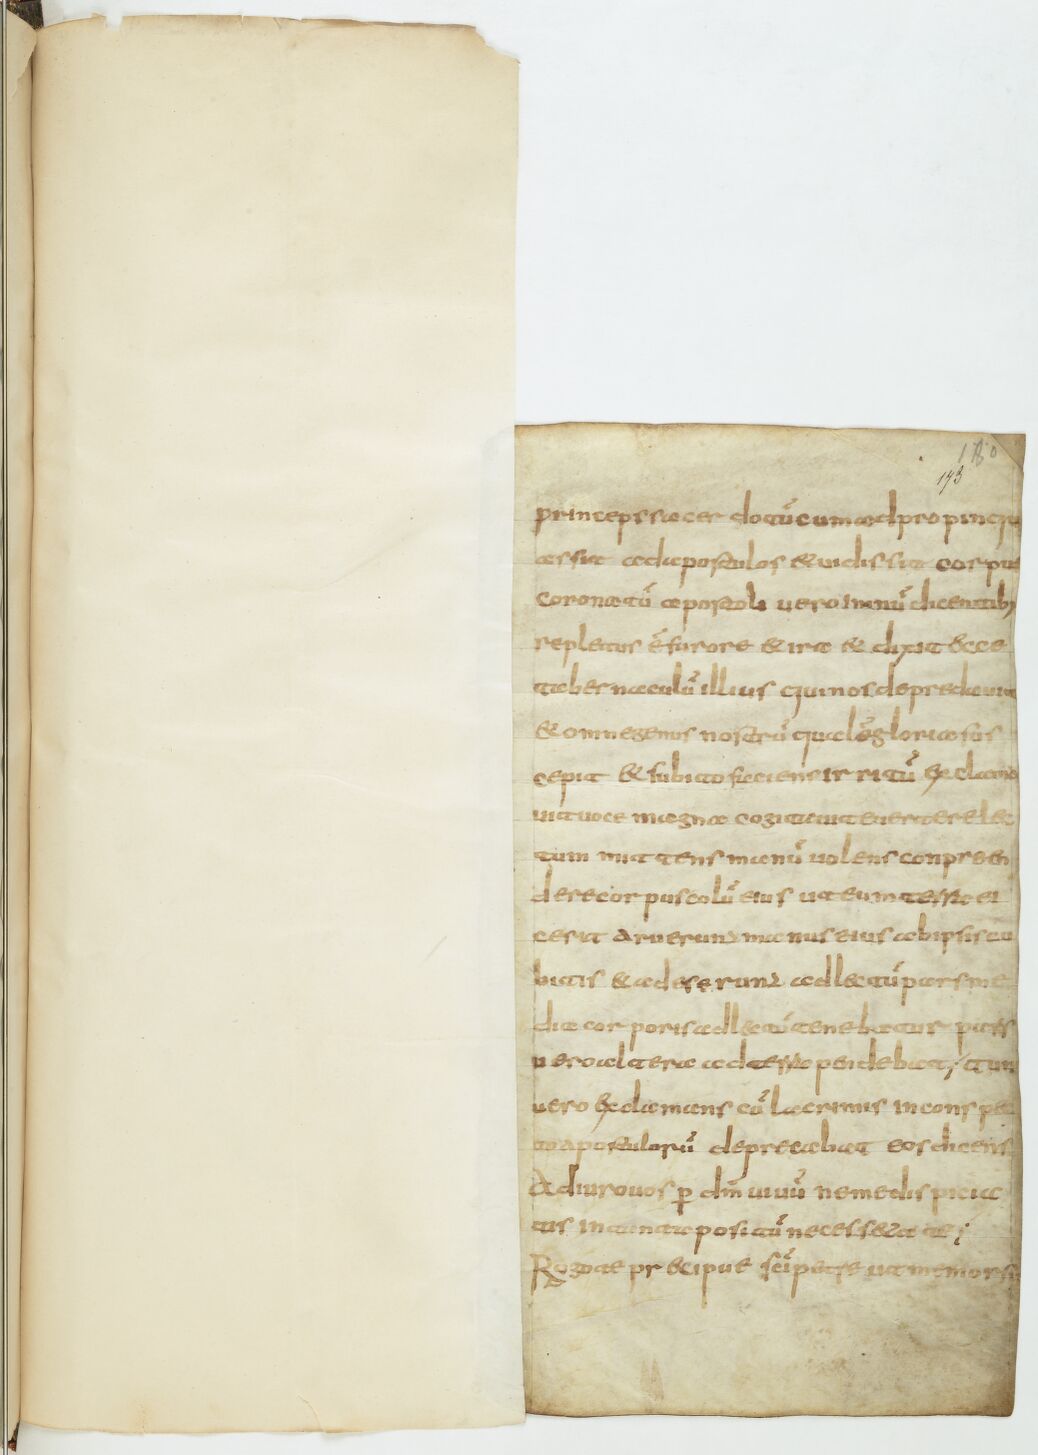 180
173
princeps sacerdotũ cum adpropinqu
assit ad apostulos & uidissit corpus
coronatũ apostoli uero imnũ dicentib;
repletus ẽ furore & ira & dixit ecce
tabernaculũ illius qui nos depredauit
& omne genus nostrũ qualẽ gloria sus
cepit & subito faciens irritũ exclama
uit uoce magna cogitauit euertere lec
tum mittens manũ uolens conpreen
dere corpuscolũ eius ut eum terra ei
cerit aruerunt manus eius ab ipsis cu
bitis & adeserunt ad lectũ pars me
dia corporis ad lectũ tenebatur pars
uero altera ad terra pendebat; tun
uero exclamans cũ lacrimis in conspec
to apostulorũ deprecabat eos dicens
Adiuro uos p̱ dm̃ uiuũ ne me dispicia
tis in tanta positũ necessetate;
Rogo te precipue sc̃i petre ut memor sis